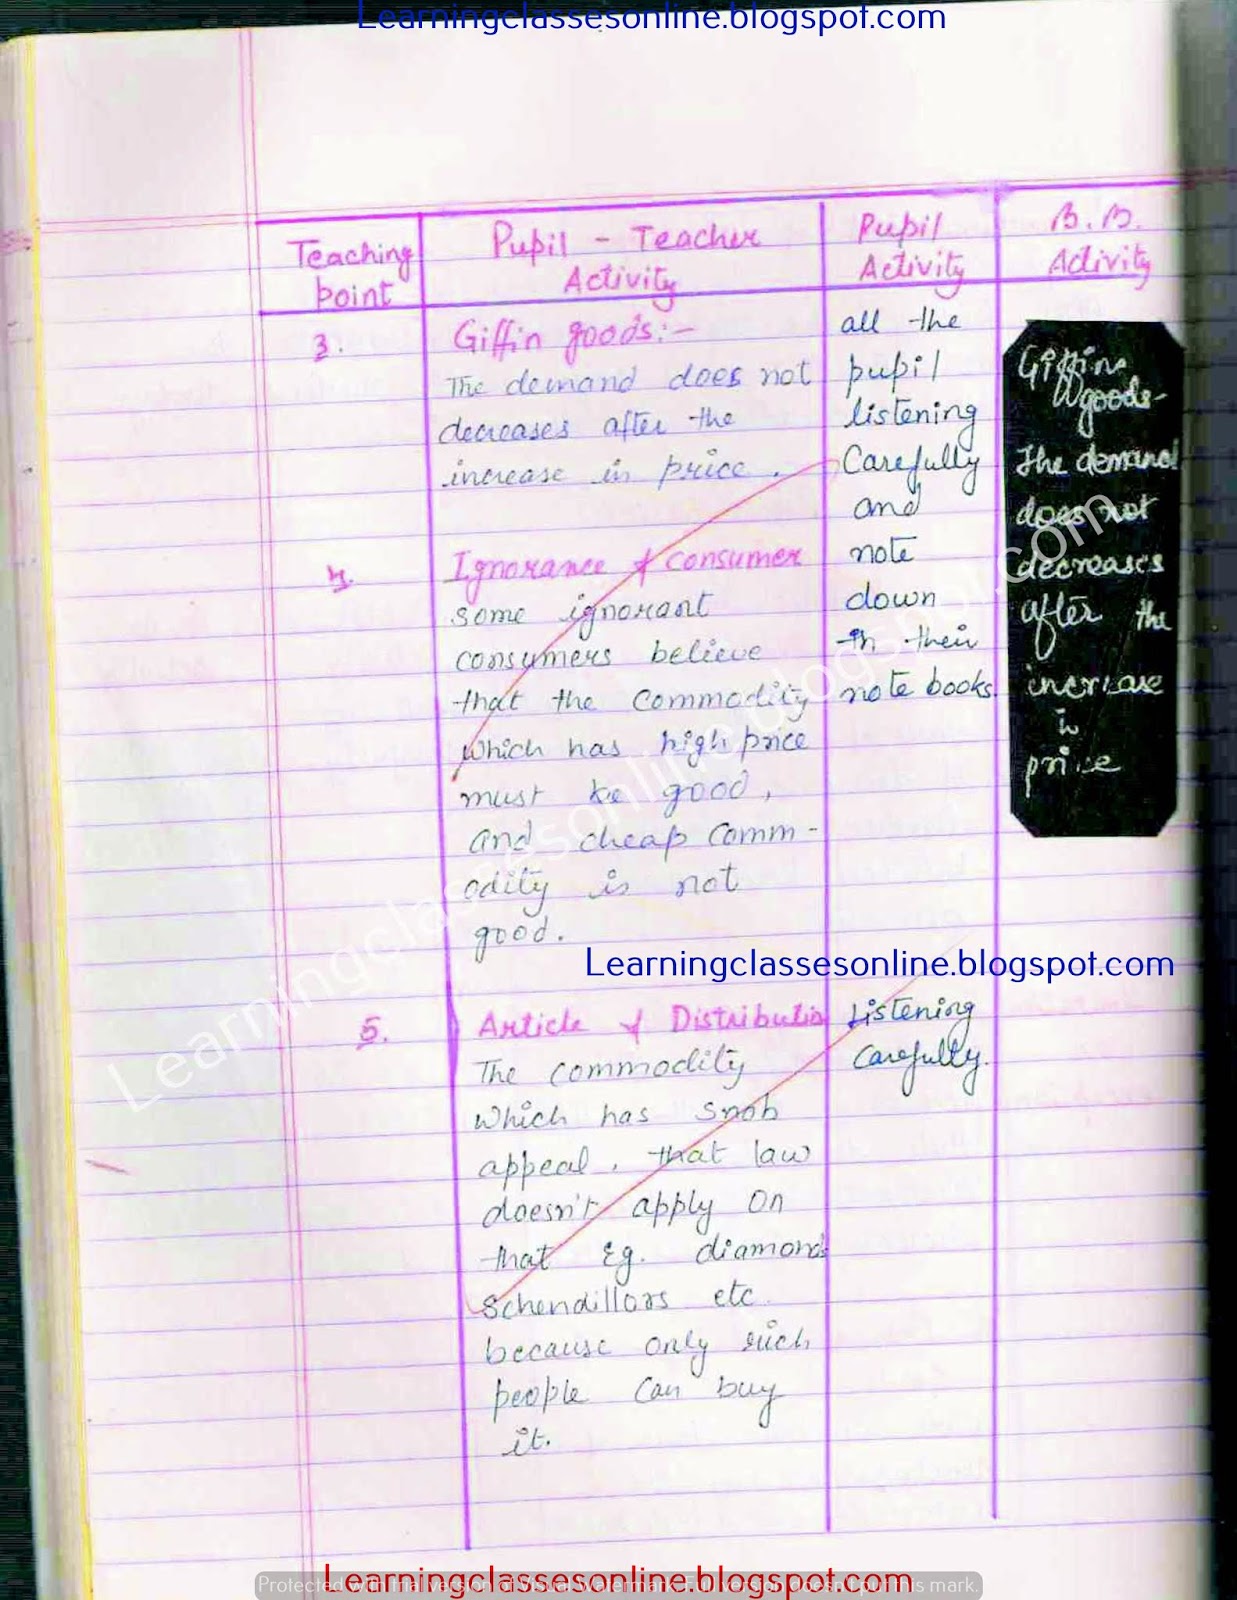 Learningclassesonline.blogspot.com
Teaching point
Pupil - Teacher Activity
Pupil Activity
B.B. Activity
3.
Giffin goods:-
The demand does not
decreases after the
increase in price.
4.
Ignorance of consumer
some ignorant
consumers believe
that the commodity
which has high price
must be good,
and cheap comm-
odity is not
good.
5.
Article of Distributio
The commodity
which has snob
appeal, that law
doesn't apply on
that Eg. diamond
schendillors etc
because only rich
people can buy
it.
all the
pupil
listening
Carefully
and
note
down
in their
note books
Listening
Carefully.
Giffins
goods-
The demand
does not
decreases
after the
increase
in
price
Learningclassesonline.blogspot.com
Learningclassesonline.blogspot.com
Learningclassesonline.blogspot.com
Protected with trial version of Visual Watermark. Full version doesn't put this mark.